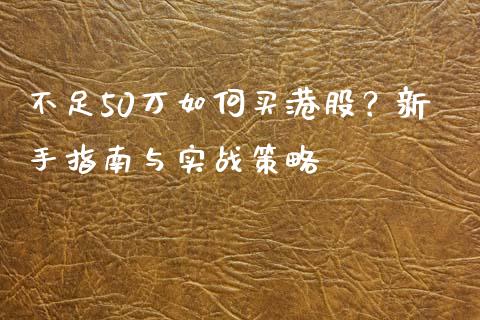 不足50万如何买港股？新
手指南与实战策略